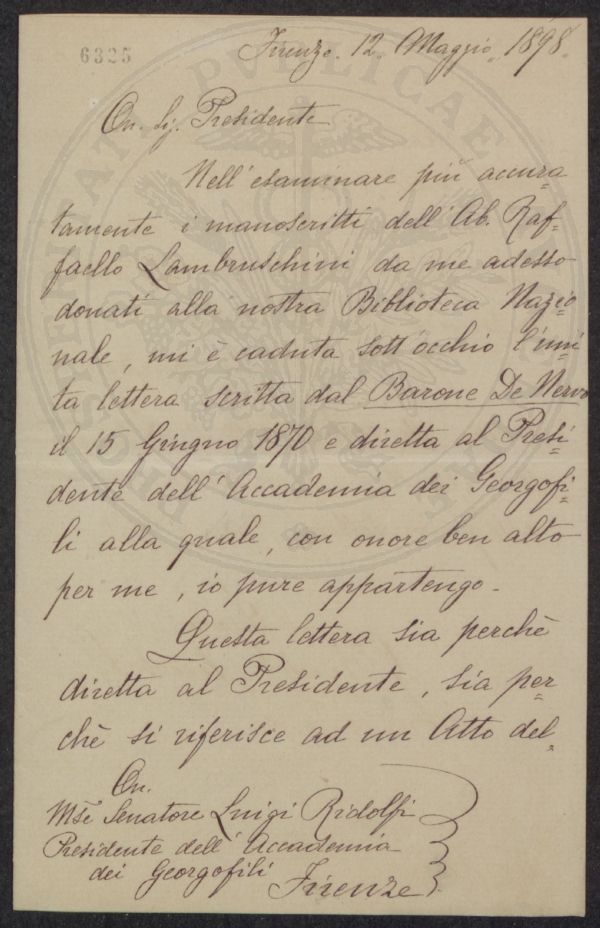 6325
Firenze. 12. Maggio. 1898.
On. Sig. Presidente
Nell'esaminare più accura=
tamente i manoscritti dell'Ab. Raf=
faello Lambruschini da me adesso
donati alla nostra Biblioteca Nazio=
nale, mi è caduta sott'occhio l'uni=
ta lettera scritta dal Barone De Nervo
il 15 Giugno 1870 e diretta al Presi=
dente dell'Accademia dei Georgofi=
li alla quale, con onore ben alto
per me, io pure appartengo.
Questa lettera sia perchè
diretta al Presidente, sia per=
chè si riferisce ad un Atto del=
On.
Mse Senatore Luigi Ridolfi
Presidente dell'Accademia
dei Georgofili
Firenze